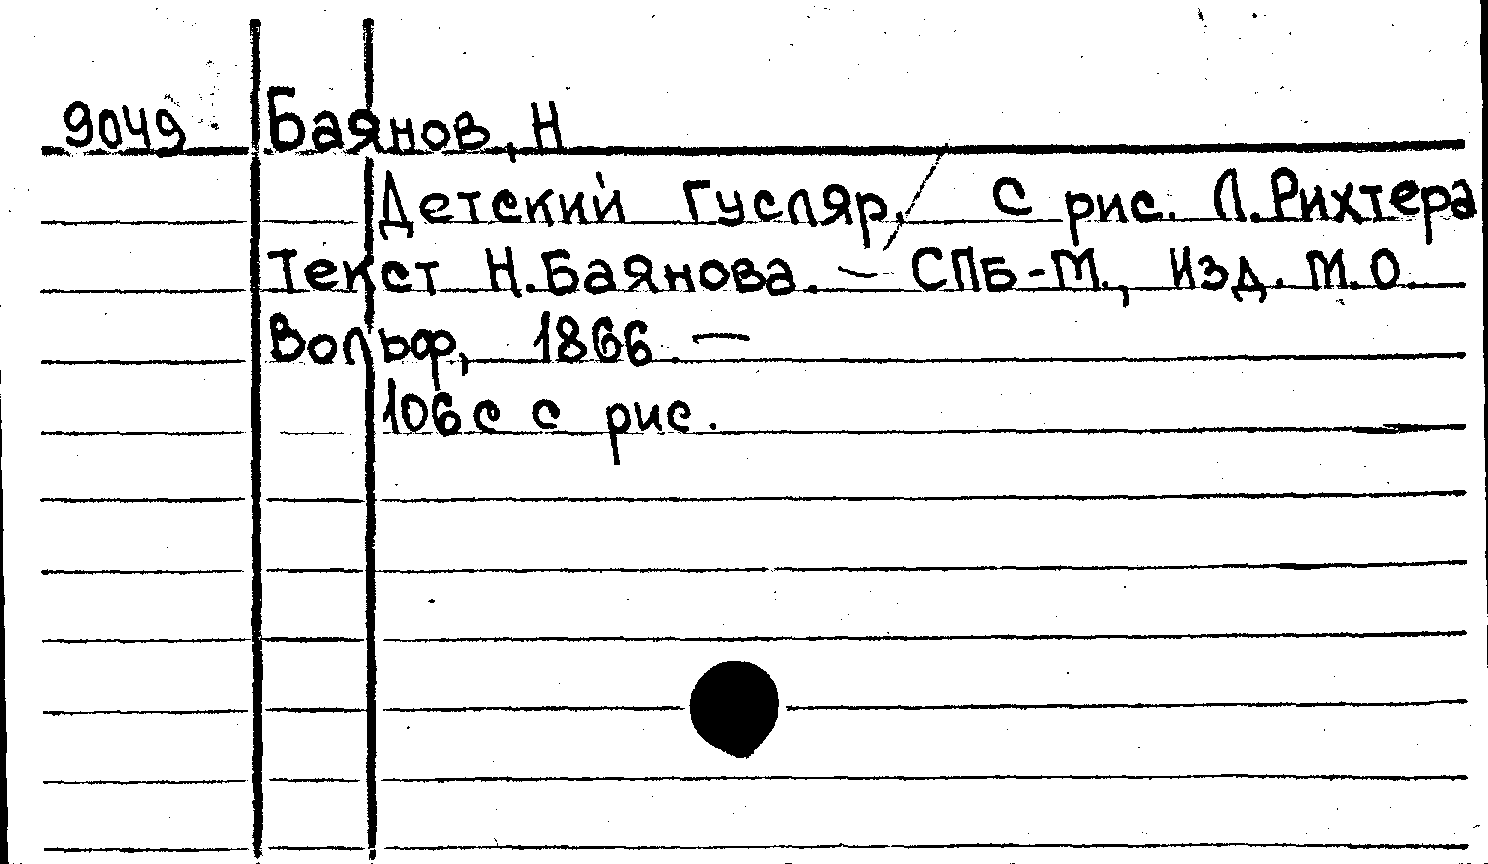 9049 Баянов, Н
Детский Гусляр, / С рис. Л. Рихтера
Текст Н. Баянова. — СПБ-М., Изд. М.О.
Вольф, 1866. —
106 с с рис.